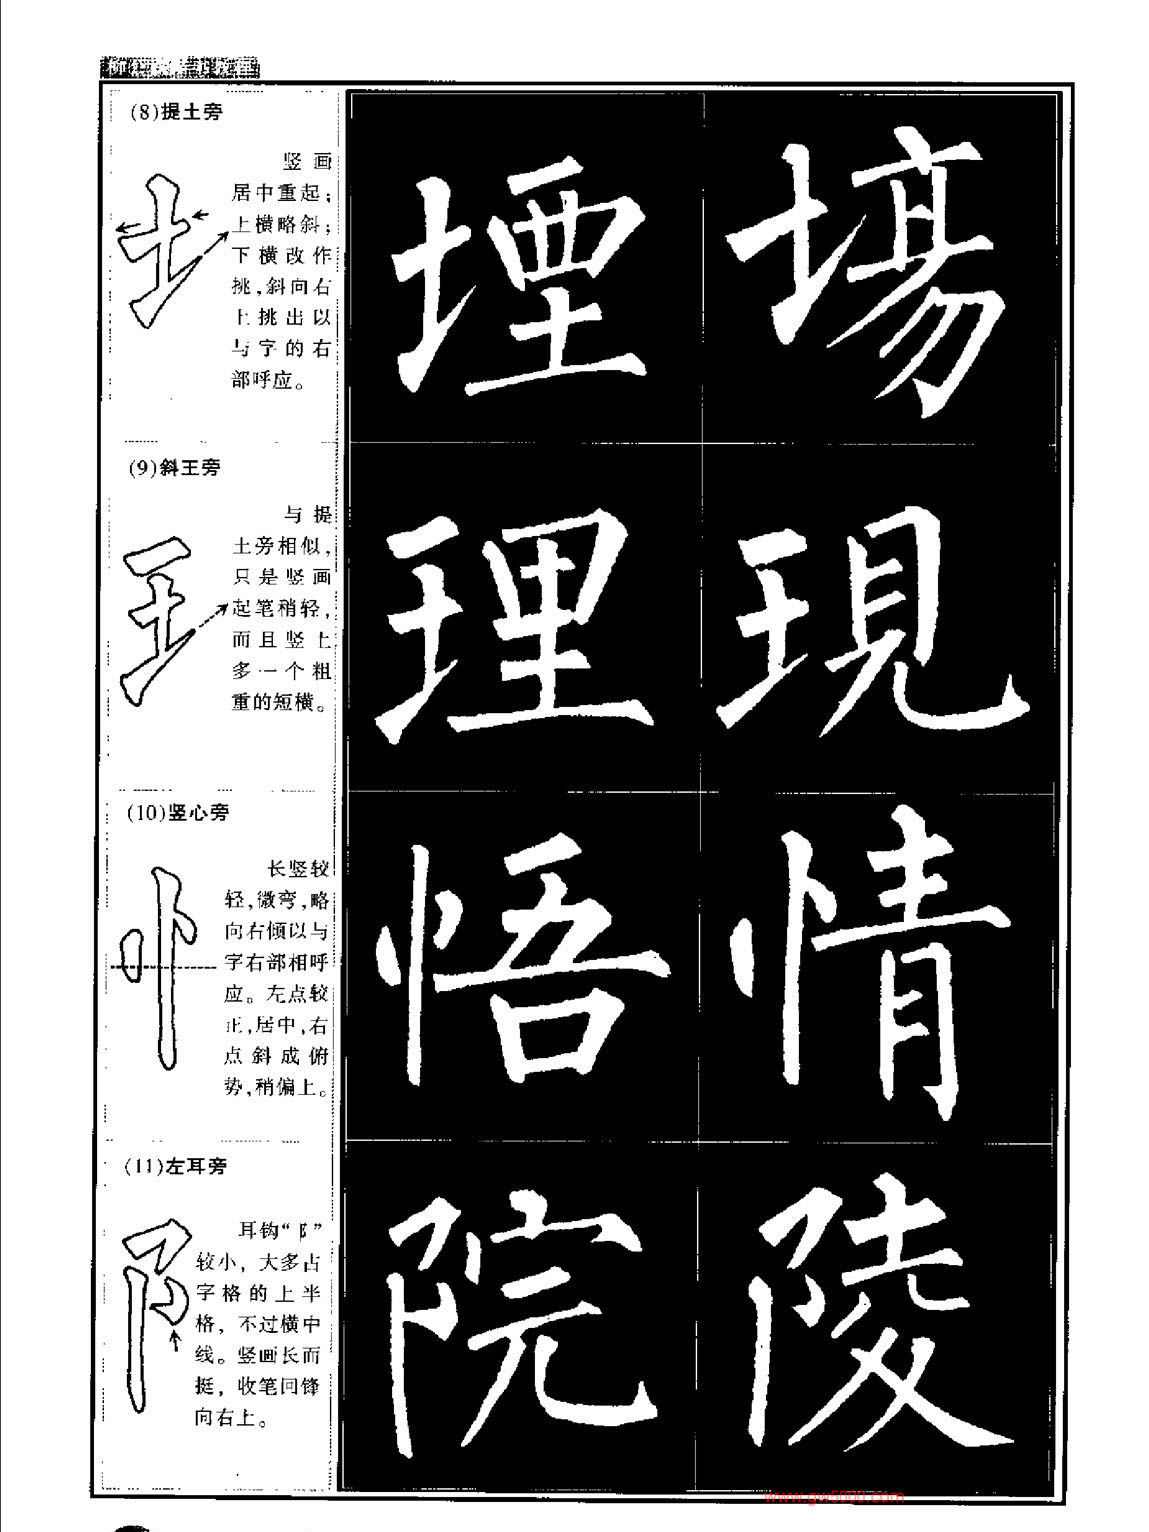 (8)提土旁
竖画
居中重起；
上横略斜；
下横改作
挑，斜向右
上挑出以
与字的右
部呼应。
堙 場
(9)斜王旁
与提
土旁相似，
只是竖画
起笔稍轻，
而且竖上
多一个粗
重的短横。
理 現
(10)竖心旁
长竖较
轻，微弯，略
向右倾以与
字右部相呼
应。左点较
正，居中，右
点斜成俯
势，稍偏上。
悟 情
(11)左耳旁
耳钩“阝”
较小，大多占
字格的上半
格，不过横中
线。竖画长而
挺，收笔回锋
向右上。
院 陵
www.gw5000.com